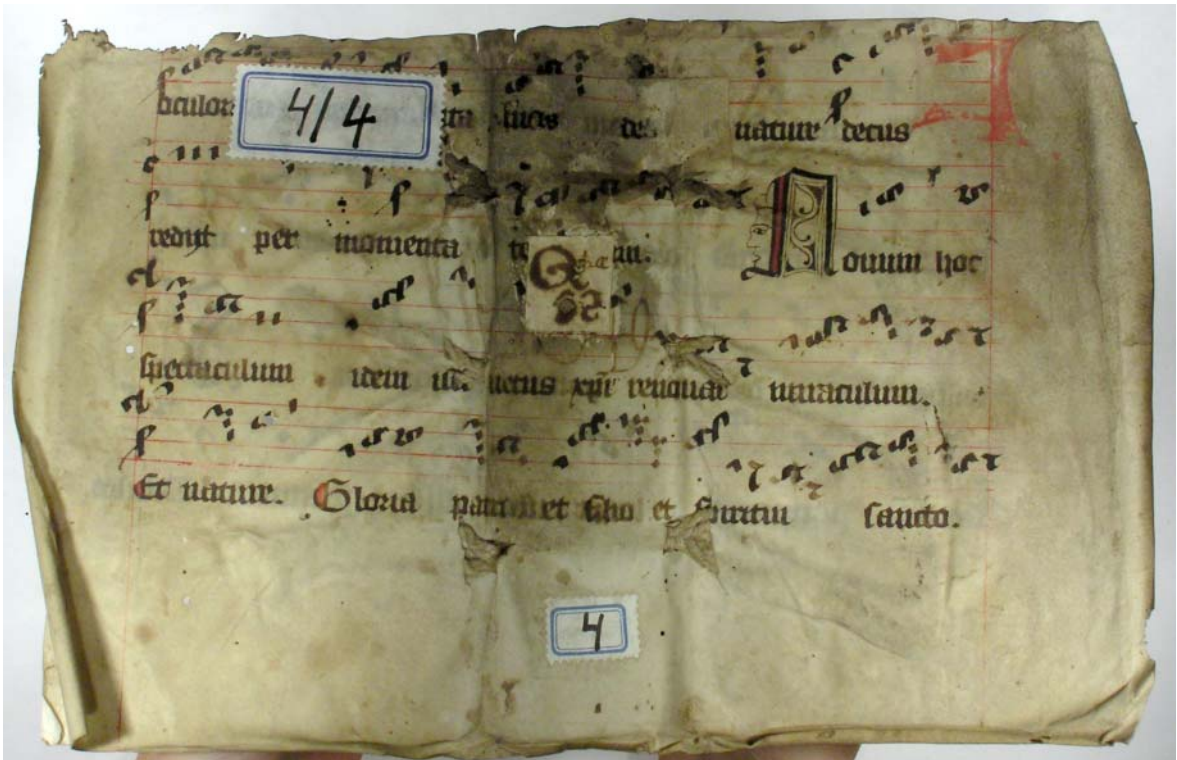 oculor 4/4 ta lucis nature decus
redijt per momenta te
Nouum hoc
spectaculum idem ist. uetus xpc renouat miraculum.
Et nature. Gloria patri et filio et spiritui sancto.
4